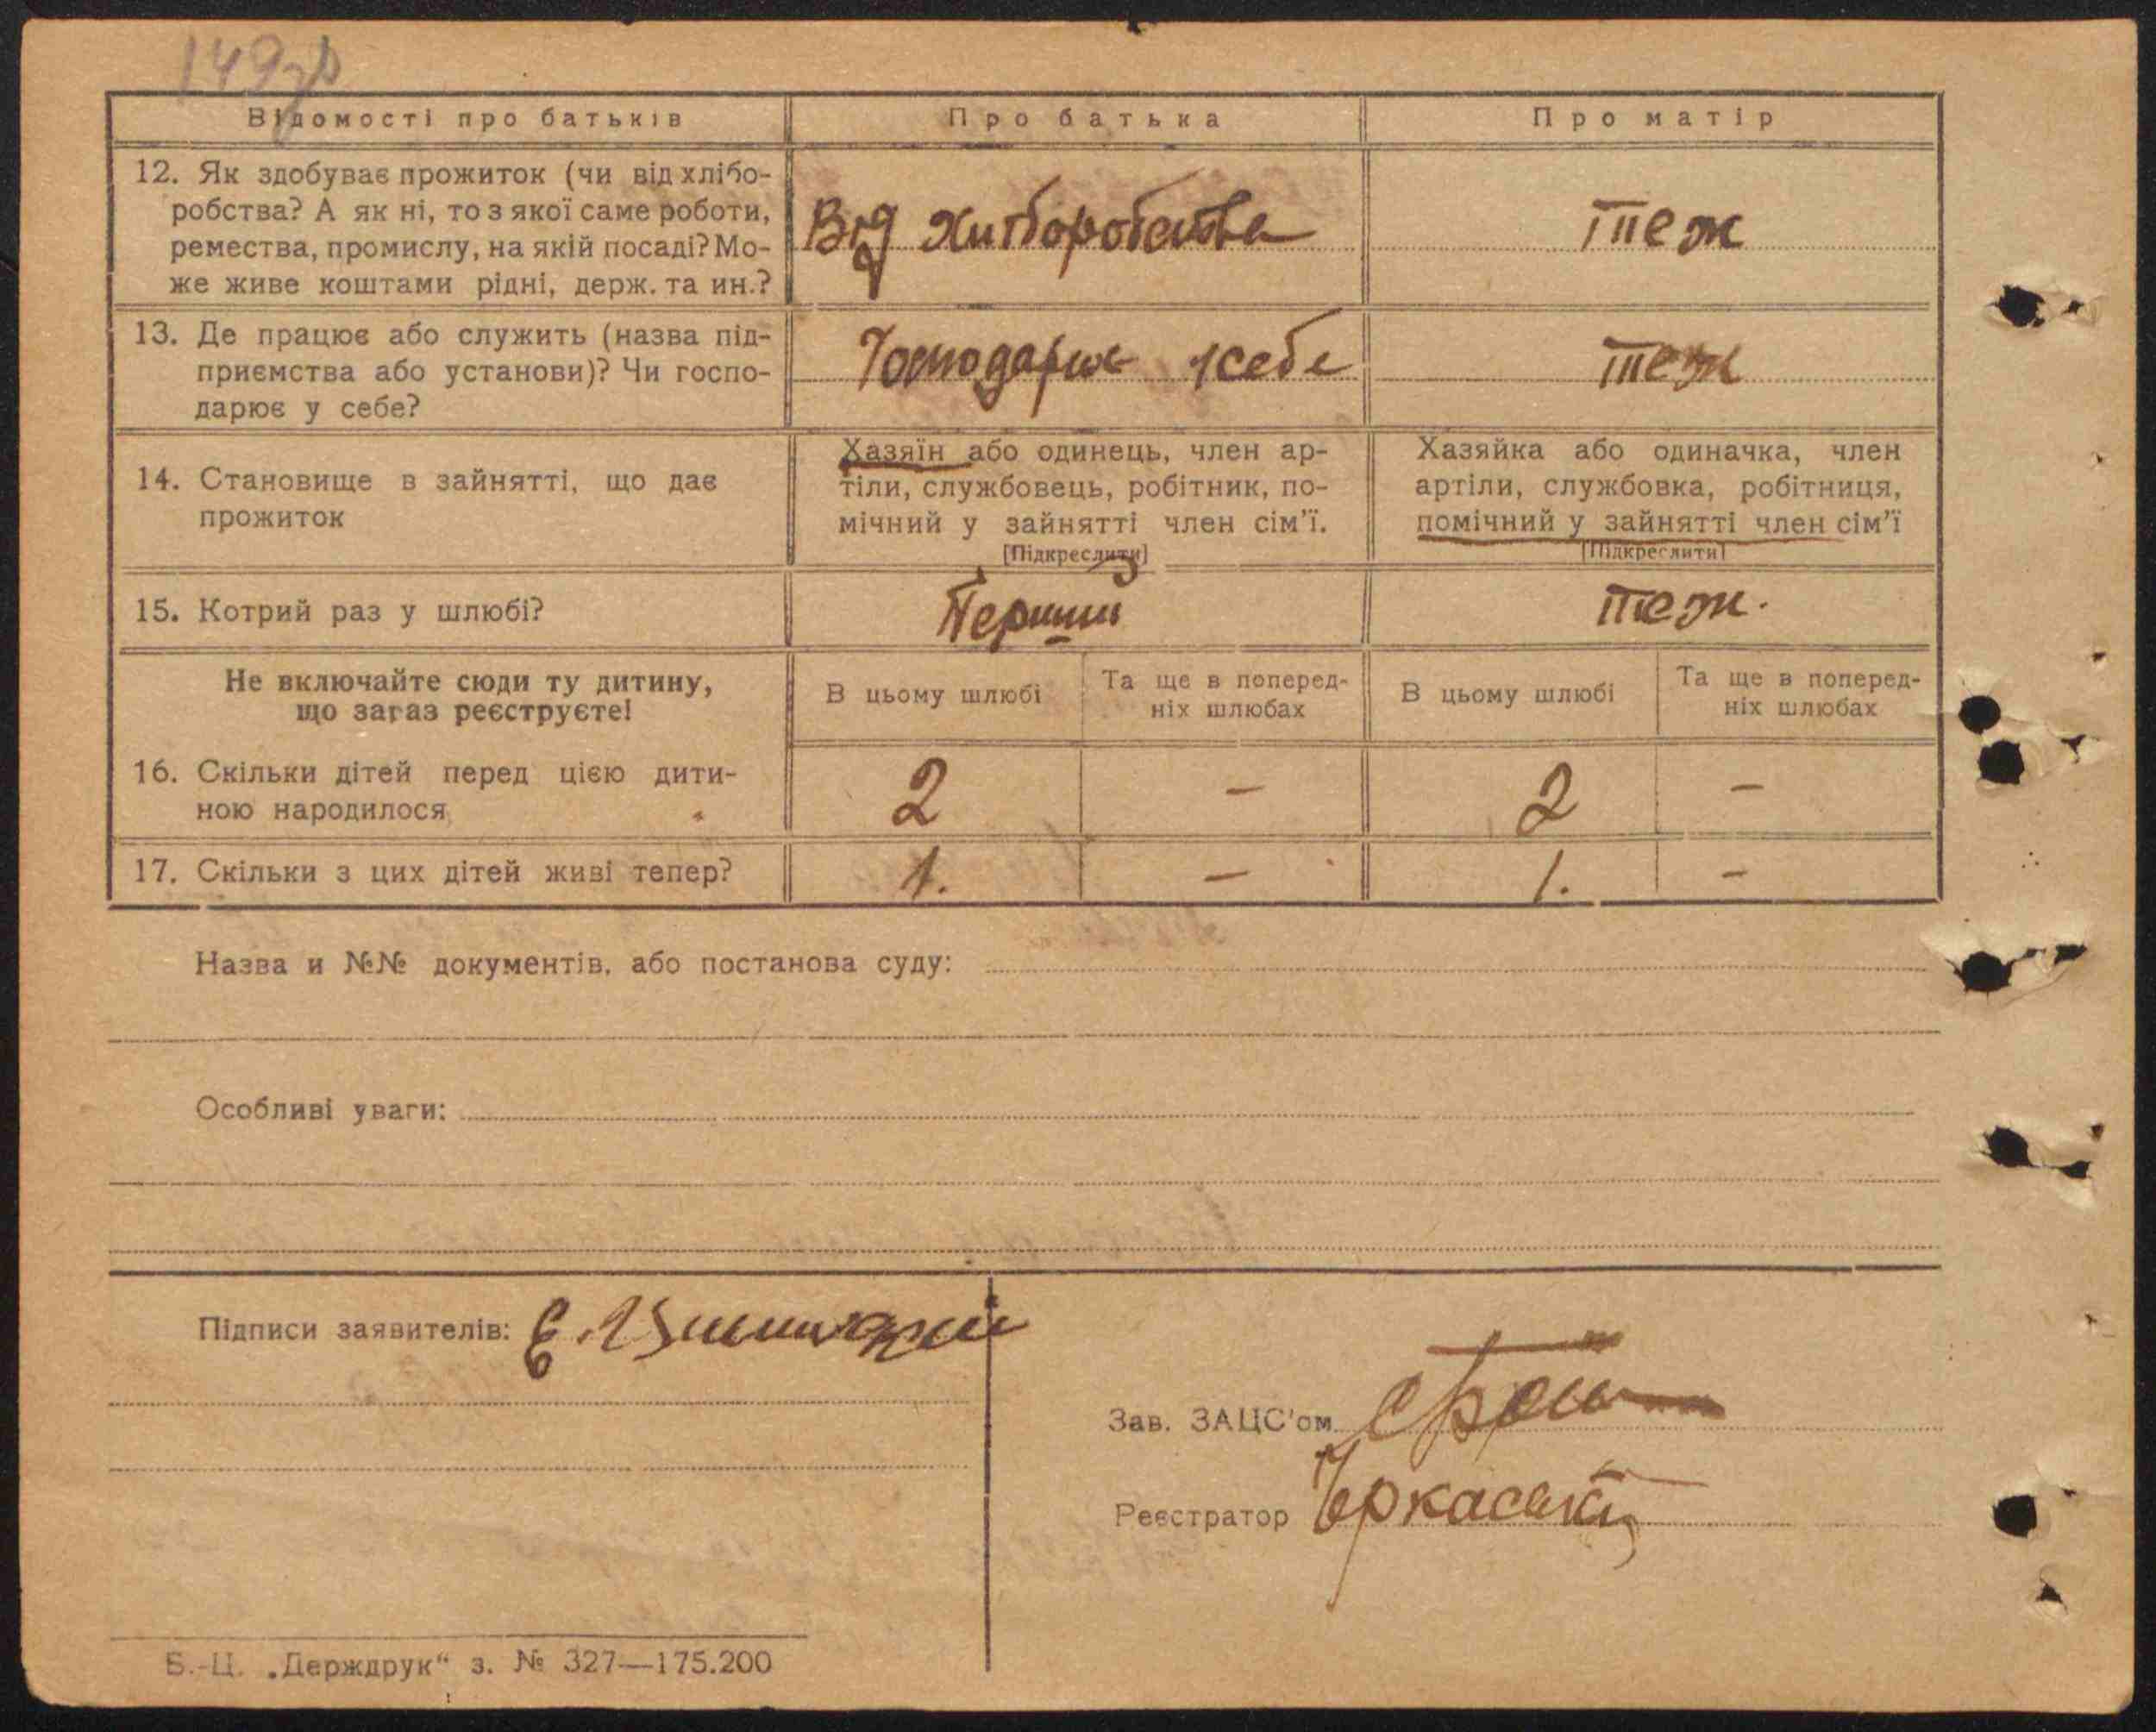 149зв
Відомості про батьків
Про батька
Про матір
12. Як здобуває прожиток (чи від хлібо-
робства? А як ні, то з якої саме роботи,
ремества, промислу, на якій посаді? Мо-
же живе коштами рідні, держ. та ин.?
Від хліборобства
теж
13. Де працює або служить (назва під-
приємства або установи)? Чи госпо-
дарює у себе?
Господарює у себе
теж
14. Становище в зайнятті, що дає
прожиток
Хазяїн або одинець, член ар-
тіли, службовець, робітник, по-
мічний у зайнятті член сім'ї.
[Підкреслити]
Хазяйка або одиначка, член
артіли, службовка, робітниця,
помічний у зайнятті член сім'ї
[Підкреслити]
15. Котрий раз у шлюбі?
Перший
теж.
Не включайте сюди ту дитину,
що зараз реєструєте!
В цьому шлюбі
Та ще в поперед-
ніх шлюбах
В цьому шлюбі
Та ще в поперед-
ніх шлюбах
16. Скільки дітей перед цією дити-
ною народилося
2
–
2
–
17. Скільки з цих дітей живі тепер?
1.
–
1.
–
Назва и №№ документів, або постанова суду:
Особливі уваги:
Підписи заявителів: Є.
Зав. ЗАЦС'ом
Реєстратор Черкаський
Б.-Ц. „Держдрук“ з. № 327—175.200